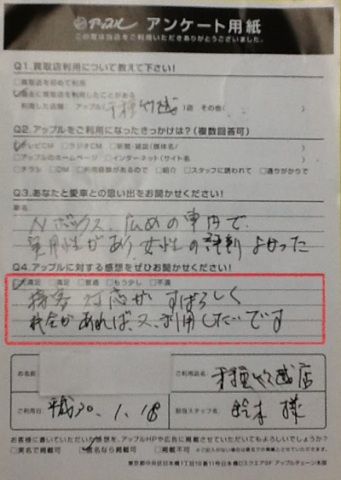 アップル アンケート用紙
この度は当店をご利用いただきありがとうございました。
Q1.買取店利用について教えて下さい!
□買取店を初めて利用
□過去に買取店を利用したことがある
利用した店舗 アップル(千種竹越)店 その他( )
Q2.アップルをご利用になったきっかけは?(複数回答可)
□テレビCM □ラジオCM □新聞・雑誌(媒体名/ )
□アップルのホームページ □インターネット(サイト名 )
□チラシ □DM □利用経験があるので □紹介 □スタッフに誘われて □通りがかりで
Q3.あなたと愛車との思い出をお聞かせください!
車名
Nボックス、広めの車内で、
実用性があり、女性の評判よかった
Q4.アップルに対する感想をぜひお聞かせください!
□満足 □普通 □もう少し □不満
接客 対応が すばらしく
機会があれば、又、利用したいです
お名前
ご利用店名 千種竹越店
ご利用日 平成30.1.18
担当スタッフ名 鈴木 様
お客様に書いていただいた感想を、アップルHPや広告に掲載させていただいてもよろしいでしょうか?
□実名で掲載可 □匿名なら掲載可 □掲載不可